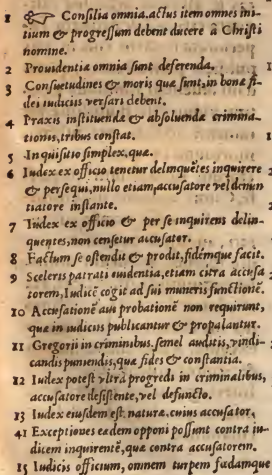 1 ☞ Consilia omnia, actus item omnes ini-
tium & progressum debent ducere à Christi
nomine.
2 Prouidentiæ omnia sunt deferenda.
3 Consuetudines & moris quæ sunt, in bonæ fi-
dei iudiciis versari debent.
4 Praxis instituendæ & absoluendæ crimina-
tionis, tribus constat.
5 Inquisitio simplex, quæ.
6 Iudex ex officio tenetur delinquẽtes inquirere
& persequi, nullo etiam, accusatore vel denun
tiatore instante.
7 Iudex ex officio & per se inquirens delin-
quentes, non censetur accusator.
8 Factum se ostendit & prodit, fidémque facit.
9 Sceleris patrati euidentia, etiam citra accusa
torem, Iudicẽ cogit ad sui muneris functionẽ.
10 Accusationẽ aut probationẽ non requirunt,
quæ in iudiciis publicantur & propalantur.
11 Gregorii in criminibus, semel auditis, vindi-
candis puniendis, quæ fides & constantia.
12 Iudex potest vltrà progredi in criminalibus,
accusatore desistente, vel defuncto.
13 Iudex eiusdem est naturæ, cuius accusator,
41 Exceptiones eædem opponi possunt contra iu-
dicem inquirentẽ, quæ contra accusatorem.
15 Iudicis officium, omnem turpem fœdamque